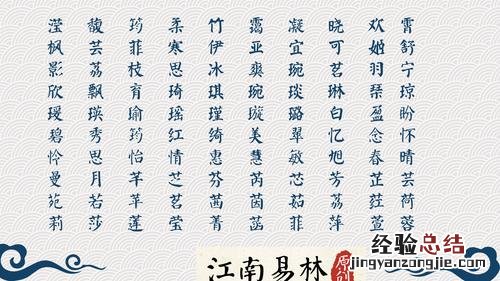 滢 馥 筠 柔 竹 霭 凝 晓 欢 霄
枫 芸 菲 寒 伊 亚 宜 可 姬 舒
影 荔 枝 思 冰 爽 琬 茗 羽 宁
欣 飘 育 琦 琪 琬 琰 琳 琹 琼
瑗 瑛 瑜 瑶 瑾 璇 璐 白 盈 盼
碧 秀 筠 红 绮 美 翠 忆 念 怀
怜 思 怡 情 惠 慧 敏 旭 春 晴
曼 月 芊 芝 芬 芮 芯 芳 芷 芸
苑 若 苹 茗 茜 茵 茹 荔 荭 荷
莉 莎 莲 莹 菁 菡 菲 萍 萱 蓉
江南易林
原创
经验总结
jingyanzongjie.com